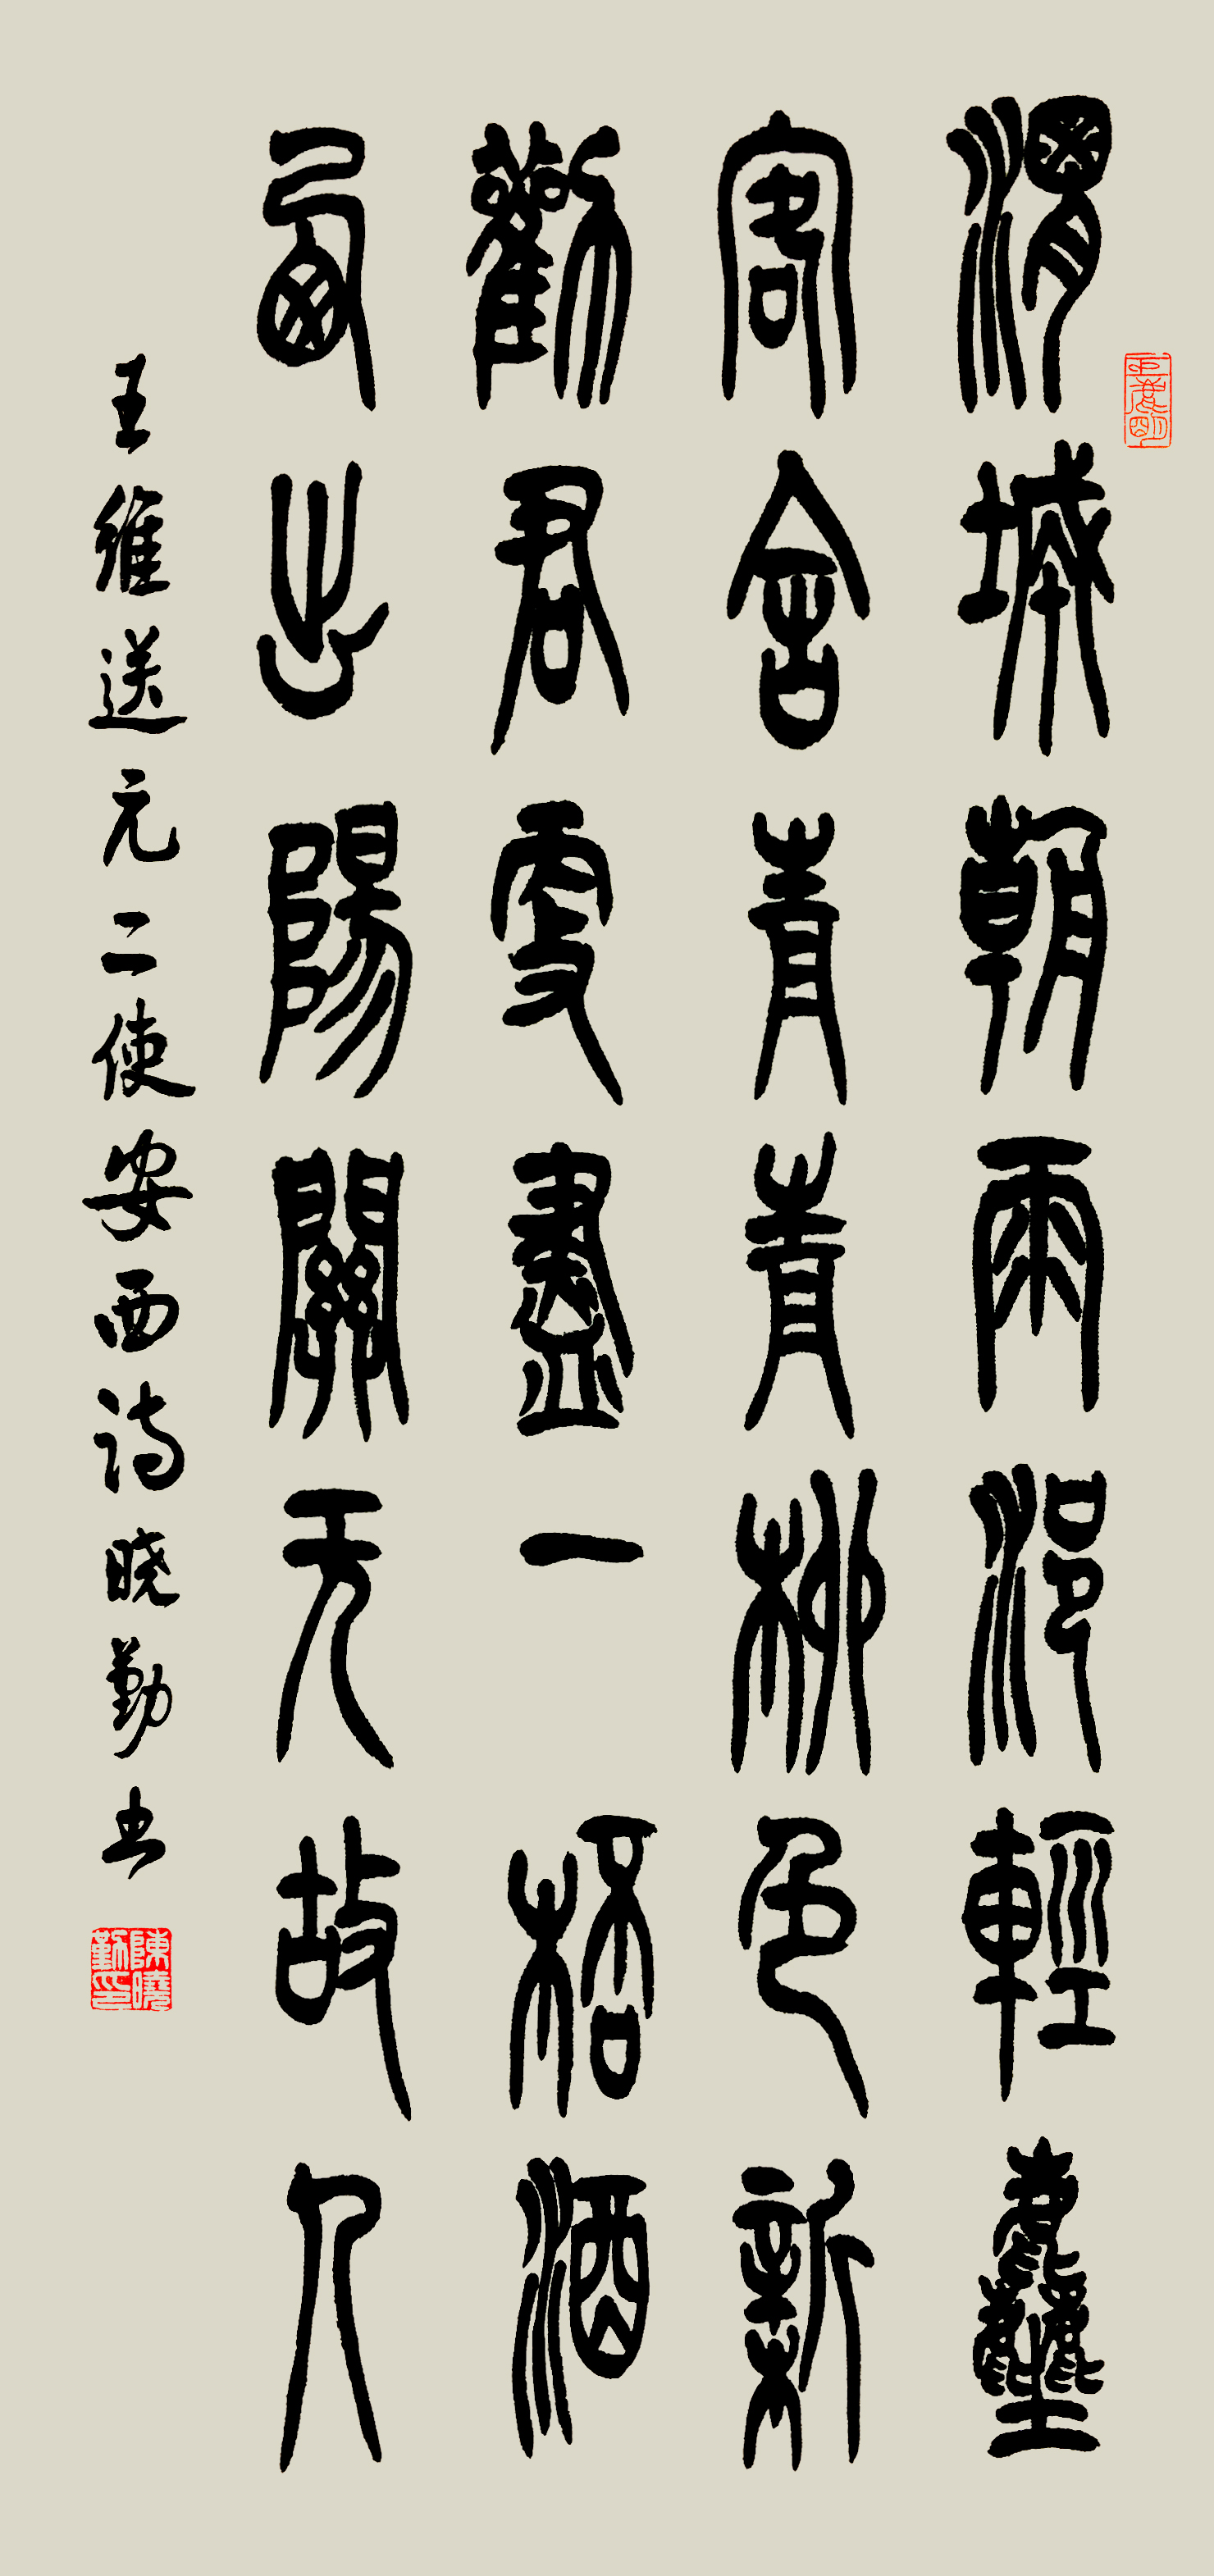 渭城朝雨浥輕塵
客舍青青柳色新
勸君更盡一桮酒
西出陽關无故人
王維送元二使安西诗晓勤书
陳曉勤印